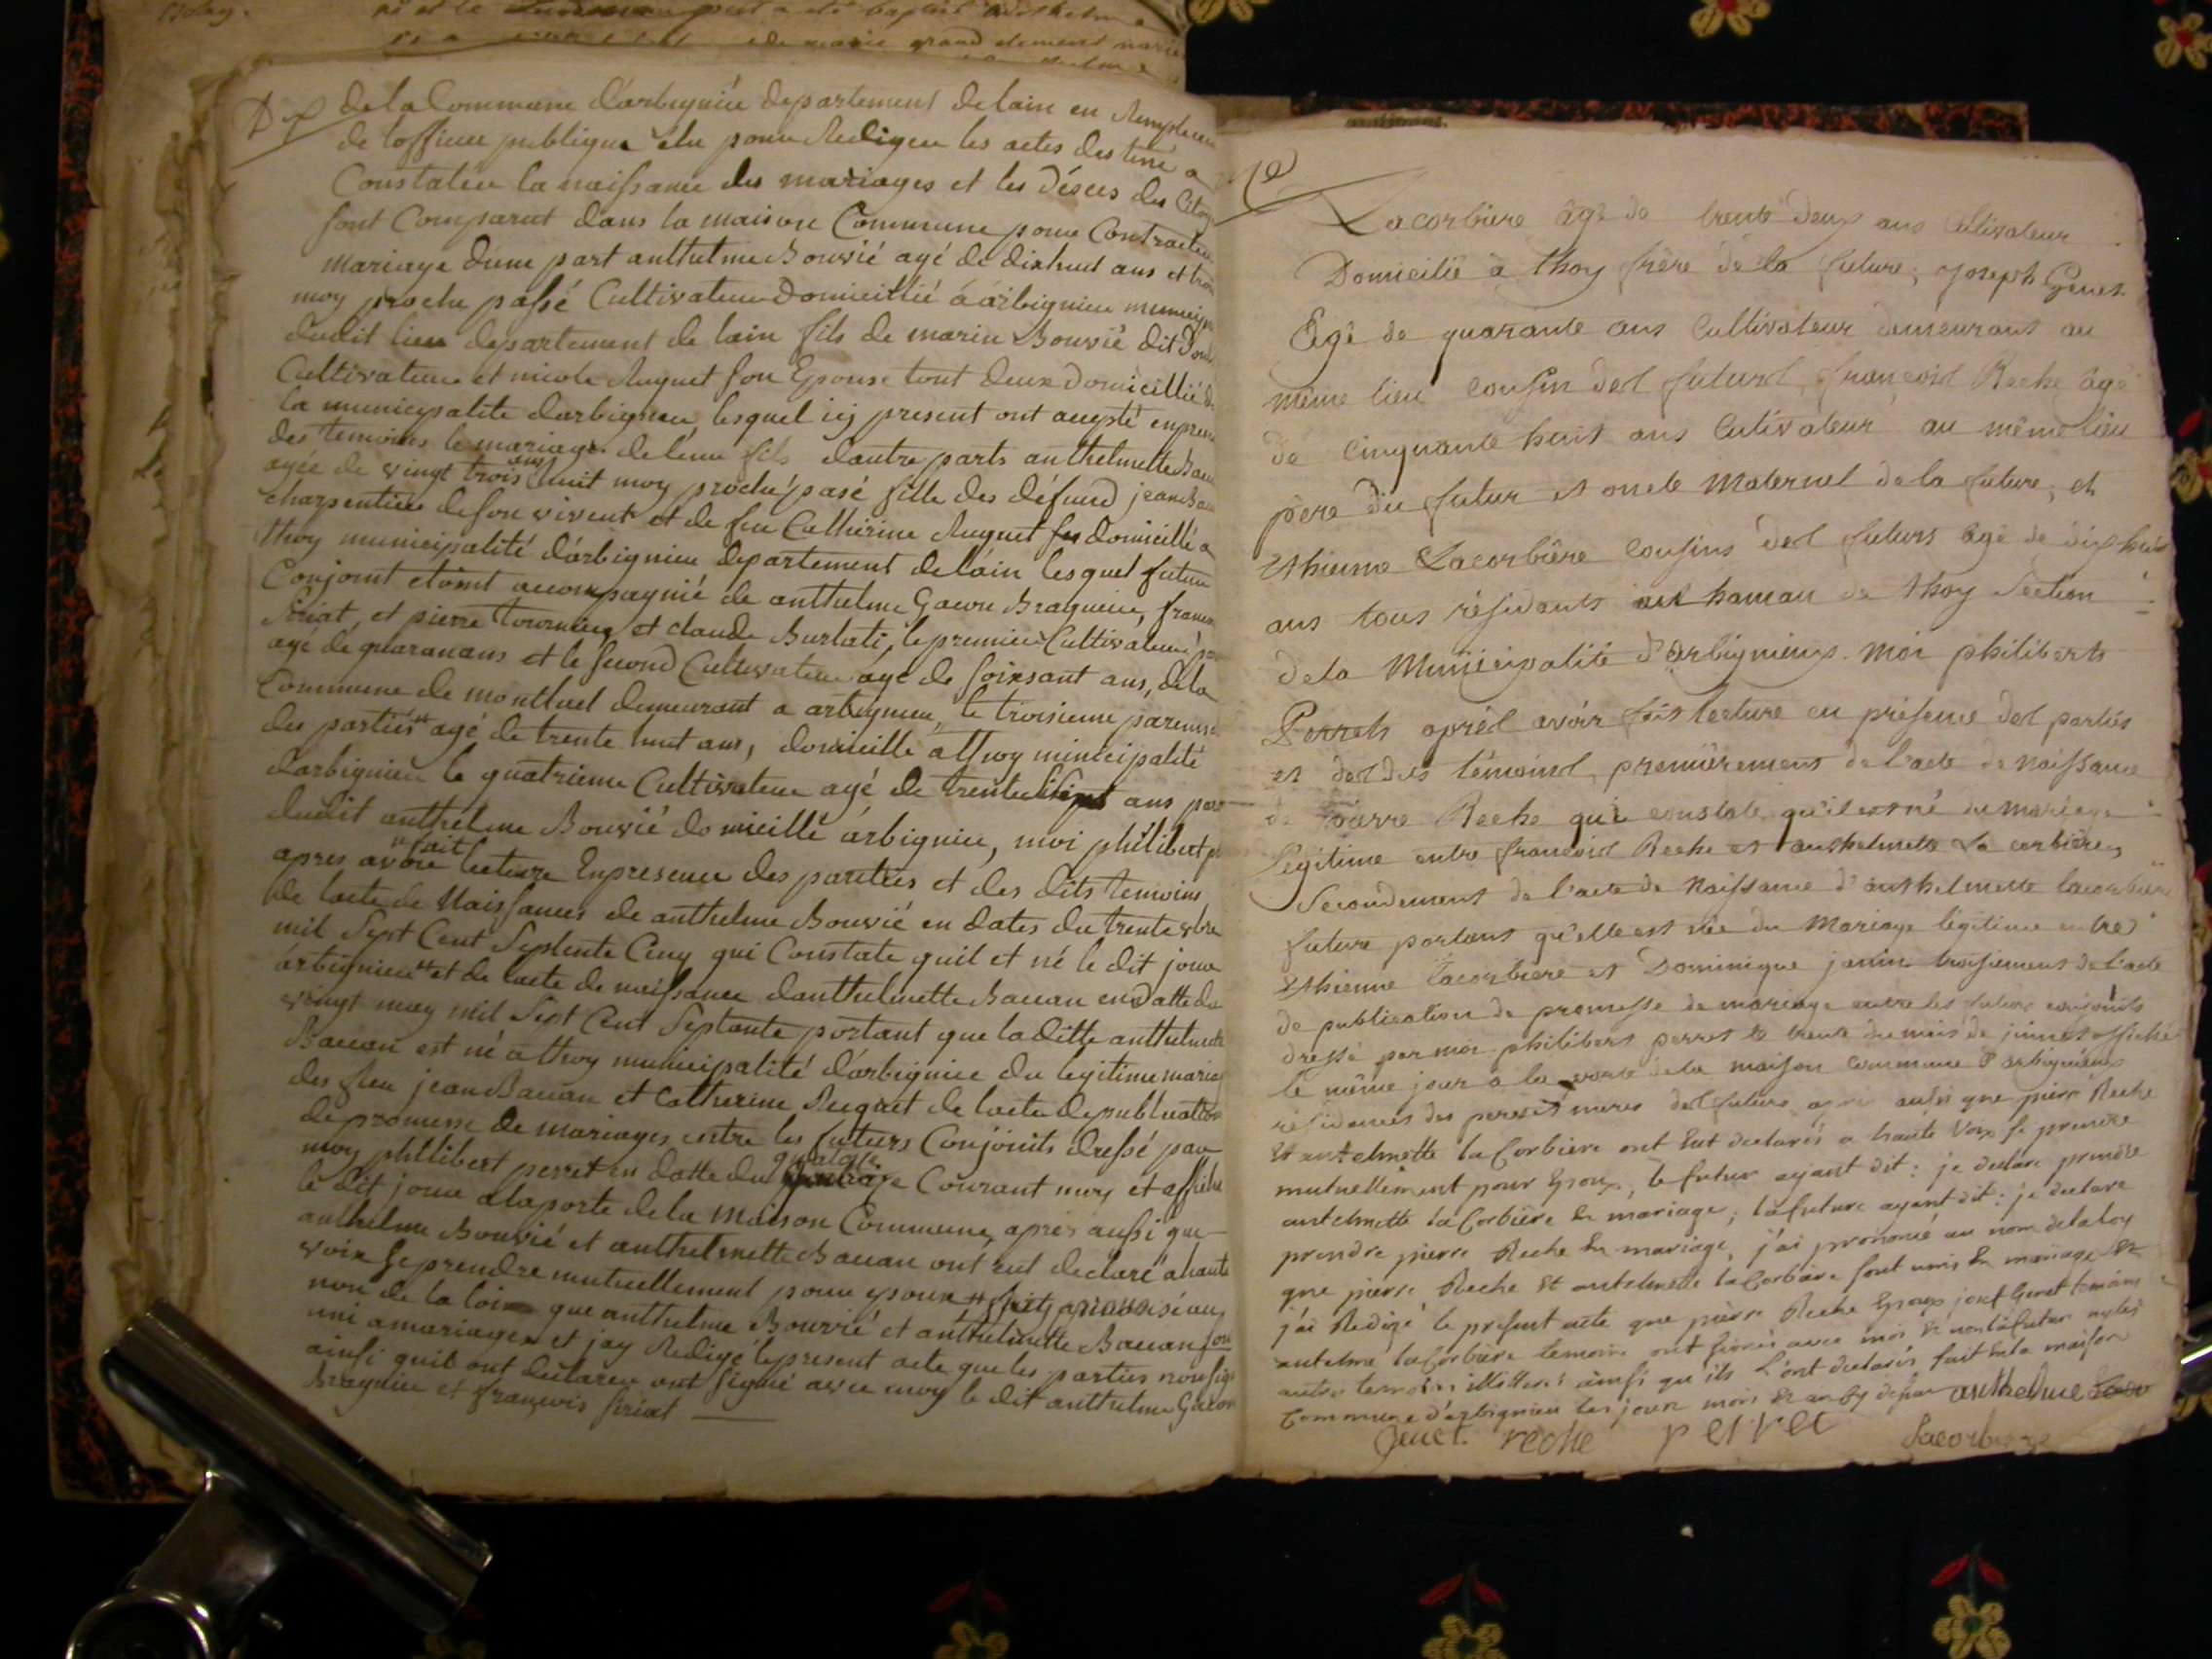 né et le
de marie grand
de la Commune d'arbignieu departement de lain en
de l'officier publique élu pour Rediger les actes destiné a
Constater la naissance des mariages et les déscès des
sont Comparut dans la maison Commune pour Contracter
Mariage dune part anthelme Bouvié agé de dixhuit ans et trois
moy proche passé Cultivateur Domicillié a arbignieu
dudit lieu departement de lain fils de marin Bouvié dit
Cultivateur et nicole Ruguet son Epouse tout deux Domicillié
la municipalite darbignieu, lesquel icy present ont
des temoins le mariage de leur fils dautre parts anthelmette
agée de vingt trois ans huit moy proche pasé fille des défund jean
charpentier de son vivent et de feu Catherine Ruguet domicillé a
thoy municipalité d'arbignieu departement de lain lesquel futur
Conjoint etoint accompagnié de anthelme Gacon Braguier,
Siriat, et pierre tournier et claude Burlati, le premier Cultivateur
agé de quaranans et le second Cultivateur agé de soixsant ans, de la
Commune de montluel demeurant a arbignieu, le troisieme
des partiés agé de trente huit ans, domicillé a thoy minicipalité
darbignieu le quatrieme Cultivateur agé de trente ans
dudit anthelme Bouvié domicillé arbignieu, moi philibert
apres avoir fait lecture En presence des partiés et des dits temoins
de lacte de Naissances de anthelme Bouvié en dates du trente
mil Sept Cent Septente Cinq qui Constate quil et né le dit jour
arbignieu et de lacte de naissance danthelmette Bauan en datte du
vingt may mil Sept Cent Septante portant que laditte
Bauan est né a thoy municipalité d'arbignieu du legitime
des feu jean Bauan et Catherine Ruguet de lacte de publication
de promesse de mariages entre les futurs Conjoints dressé par
moy philibert perret en datte du Courant moy et
le dit jour a la porte de la maison Commune, apres aussi que
anthelme Bouvié et anthelmette Bauan ont eut declaré a haute
voix se prendre mutuellement pour epoux
non de la loi que anthelme Bouvié et anthelmette Bauan
uni a mariage et jay Redigé le present acte que les partiés
ainsi quil ont declarer ont signé avec moy le dit anthelme
Braguier et françois siriat
Lacorbiere âgé de trente deux ans Cultivateur
Domicilié à thoy frère de la future, joseph Genet
Agé de quarante ans Cultivateur demeurant au
même lieu cousin des futurs, françois Reche âgé
de cinquante huit ans Cultivateur au même lieu
père du futur et oncle maternel de la future, et
Ethienne Lacorbière cousins des futurs agé de dix huit
ans tous résidants au hamau de thoy Section
de la Municipalité d'Arbignieux. Moi philibert
Perret après avoir fait lecture en présence des partiés
et des dits témoins, premiérement de l'acte de naissance
de pierre Reche qui constate qu'il est né du mariage
légitime entre françois Reche et anthelmette La corbière,
Secondement de l'acte de Naissance d'anthelmette lacorbière
future portant qu'elle est née du Mariage légitime entre
Ethienne lacorbière et Dominique janin troisiement de l'acte
de publication de promesse de mariage entre les futurs conjoints
dressé par moi philibert perret le trente du mois de juin et affiché
le même jour a la porte de la maison commune d'arbignieux
résidences des peres et meres des futurs aussi que pierre Reche
Et antelmette la Corbiere ont Eut declarés a haute Voix se prendre
mutuellement pour Epoux, le futur ayant dit: je declare prendre
antelmette la Corbière En mariage, la future ayant dit: je declare
prendre pierre Reche En mariage, j'ai prononcé au nom de la loy
que pierre Reche Et antelmette la Corbière sont unis En mariage Et
j'ai Redigé le present acte que pierre Reche Epoux josef Genet temoins
antelme la Corbière temoins ont signés avec moi Et non la future ny les
autres temoins illitterés ainsi qu'ils l'ont declarés fait En la maison
Commune d'arbignieu les jour mois Et an anthelme
Genet reche perret Lacorbiere